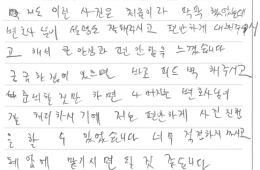 저도 이런 사건은 처음이라 막막 했었는데
변호사 님이 설명도 잘해주시고 편안하게 대해주시
고 해서 큰 안심과 편안함을 느꼈습니다
궁금한 점이 있으면 바로 피드백 해주시고
준비할 것만 하면 나머지는 변호사님이
잘 처리하시기에 저는 편안하게 사건 진행
을 할 수 있었습니다 너무 걱정하지 마시고
믿고 맡기시면 될 것 같습니다